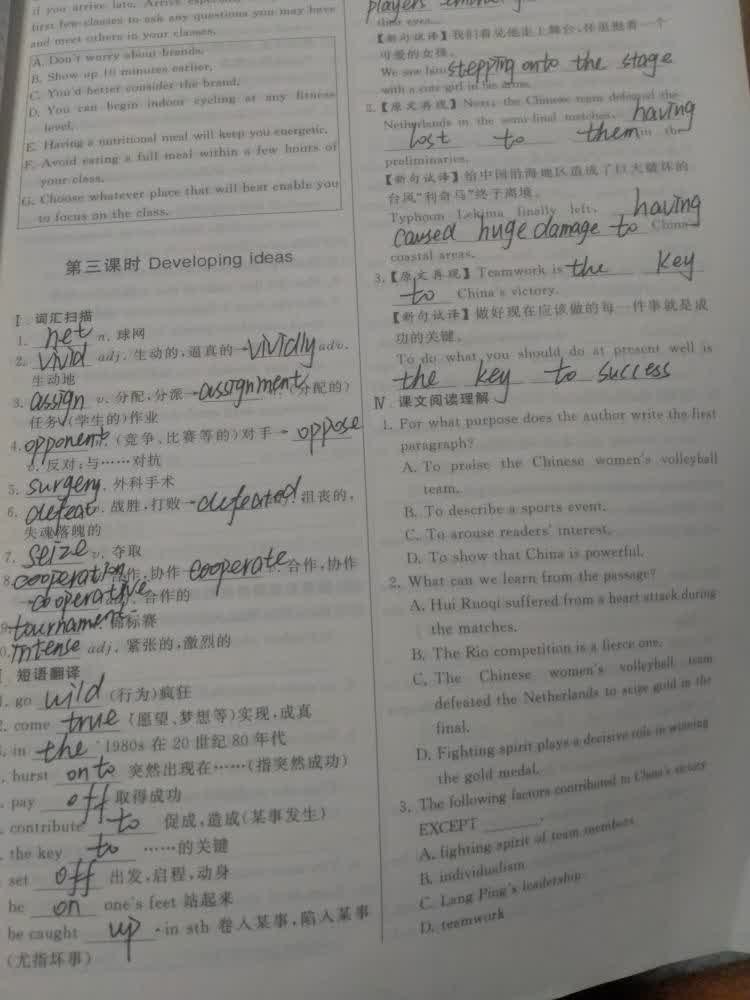 if you arrive late. Arrive
first few classes to ask any questions you may have
and meet others in your classes.
A. Don't worry about brands.
B. Show up 10 minutes earlier.
C. You'd better consider the brand.
D. You can begin indoor cycling at any fitness
level.
E. Having a nutritional meal will keep you energetic.
F. Avoid eating a full meal within a few hours of
your class.
G. Choose whatever place that will best enable you
to focus on the class.
第三课时 Developing ideas
Ⅰ. 词汇扫描
1. net n. 球网
2. vivid adj. 生动的,逼真的→vividly adv.
生动地
3. assign v. 分配,分派→assignment n. (分配的)
任务,(学生的)作业
4. opponent n. (竞争、比赛等的)对手→ oppose
v. 反对;与……对抗
5. surgery n. 外科手术
6. defeat v. 战胜,打败→defeated adj. 沮丧的,
失魂落魄的
7. seize v. 夺取
8. cooperation 合作,协作 cooperate v. 合作,协作
→cooperative adj. 合作的
9. tournament n. 锦标赛
0. intense adj. 紧张的,激烈的
短语翻译
1. go wild (行为)疯狂
2. come true (愿望、梦想等)实现,成真
. in the 1980s 在 20 世纪 80 年代
. burst onto 突然出现在……(指突然成功)
. pay off 取得成功
. contribute to 促成,造成(某事发生)
. the key to ……的关键
. set off 出发,启程,动身
be on one's feet 站起来
be caught up in sth 卷入某事,陷入某事
(尤指坏事)
players
their eyes.
【新句试译】我们看见他走上舞台,怀里抱着一个
可爱的女孩。
We saw him stepping onto the stage
with a cute girl in his arms.
2. 【原文再现】Next, the Chinese team defeated the
Netherlands in the semi-final matches, having
lost to them in the
preliminaries.
【新句试译】给中国沿海地区造成了巨大破坏的
台风“利奇马”终于离境。
Typhoon Lekima finally left, having
caused huge damage to China's
coastal areas.
3. 【原文再现】Teamwork is the key
to China's victory.
【新句试译】做好现在应该做的每一件事就是成
功的关键。
To do what you should do at present well is
the key to success
Ⅳ. 课文阅读理解
1. For what purpose does the author write the first
paragraph?
A. To praise the Chinese women's volleyball
team.
B. To describe a sports event.
C. To arouse readers' interest.
D. To show that China is powerful.
2. What can we learn from the passage?
A. Hui Ruoqi suffered from a heart attack during
the matches.
B. The Rio competition is a fierce one.
C. The Chinese women's volleyball team
defeated the Netherlands to seize gold in the
final.
D. Fighting spirit plays a decisive role in winning
the gold medal.
3. The following factors contributed to China's victory
EXCEPT ______.
A. fighting spirit of team members
B. individualism
C. Lang Ping's leadership
D. teamwork